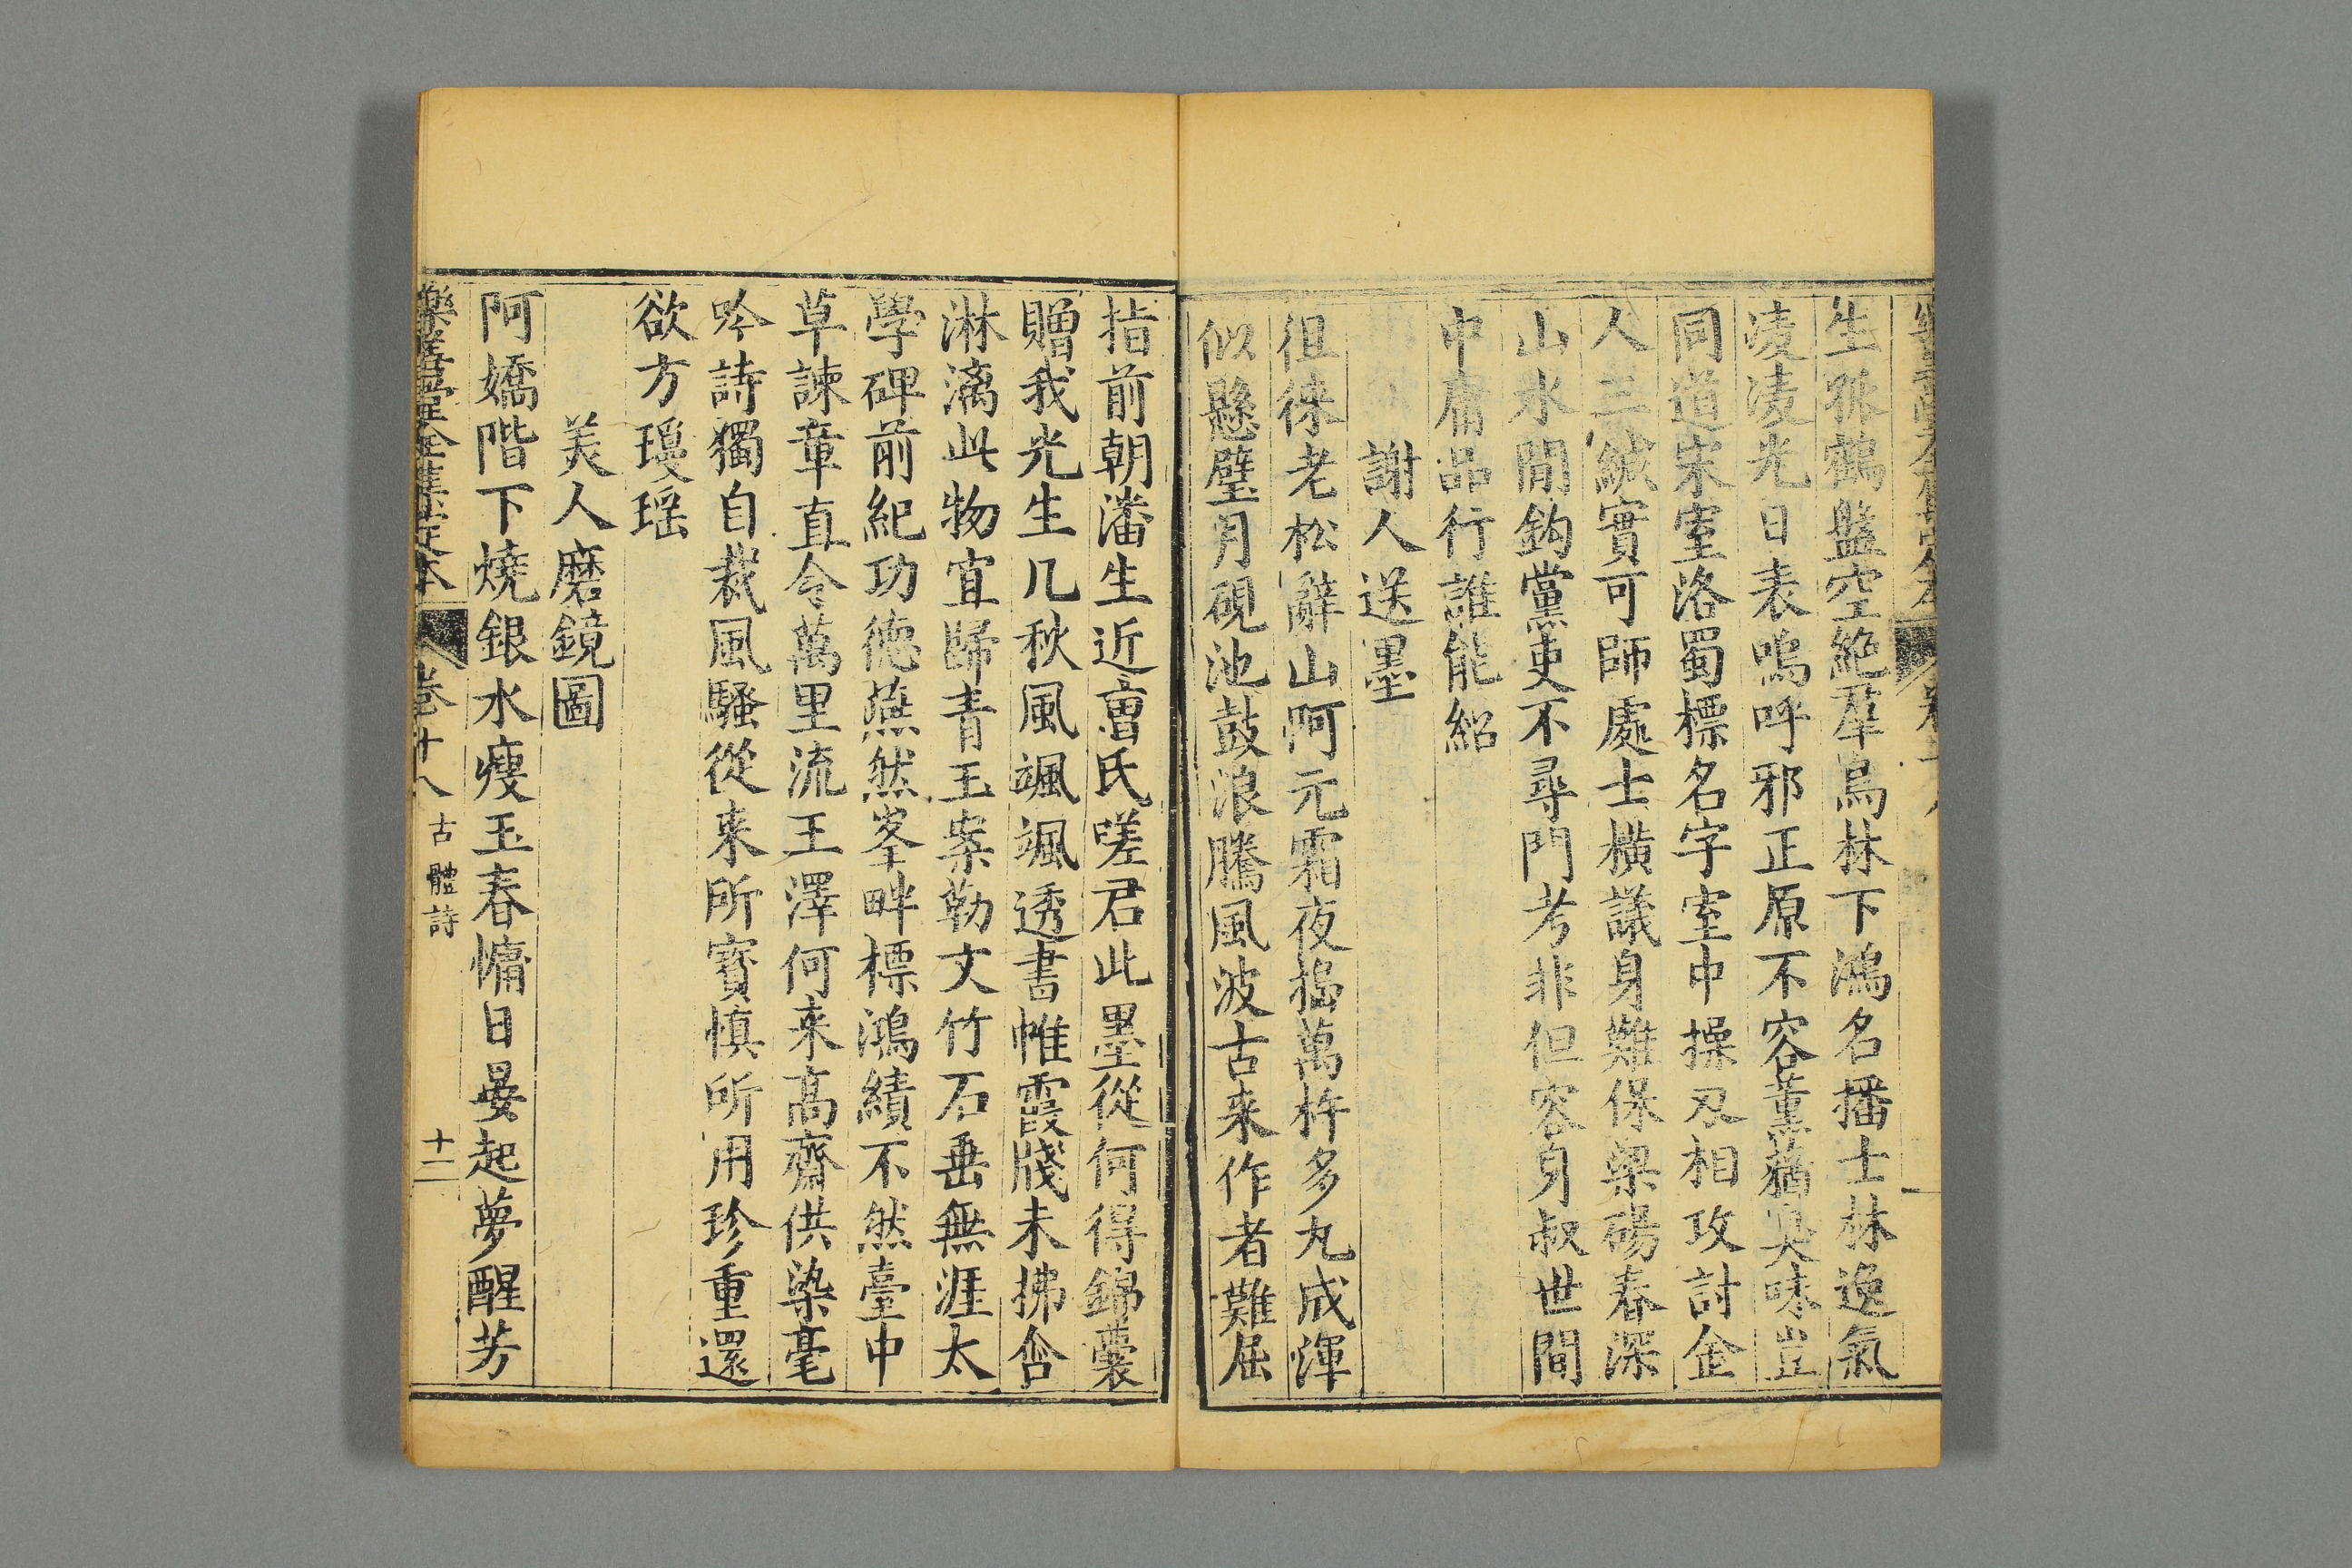 生孤鶴盤空絶羣烏林下鴻名播士林逸氣
凌凌光日表嗚呼邪正原不容薰蕕臭味豈
同道宋室洛蜀標名字室中操刃相攻討企
人三緘實可師處士橫議身難保梁碭春深
山水間鈎黨吏不尋門考非但容身叔世間
中庸品行誰能紹
謝人送墨
徂徠老松辭山阿元霜夜搗萬杵多丸成渾
似懸璧月硯池鼓浪騰風波古来作者難屈
指前朝潘生近曹氏嗟君此墨從何得錦囊
贈我光生几秋風颯颯透書帷霞牋未拂含
淋漓此物宜歸青玉案勒文竹石垂無涯太
學碑前紀功德燕然峯畔標鴻績不然臺中
草諫章直令萬里流王澤何来高齋供染毫
吟詩獨自裁風騷從来所寶慎所用珍重還
欲方瓊瑶
美人磨鏡圖
阿嬌階下燒銀水瘦玉春慵日晏起夢醒芳
樂善堂全集定本 卷十八 古體詩 十二